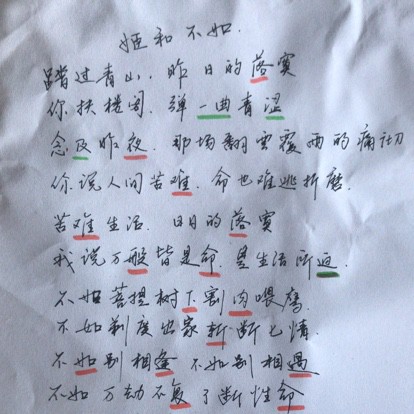 姬和不如.
踏过青山，昨日的落寞
你扶楼阁．弹一曲青涩
念及昨夜．那场翻云覆雨的痛切
你说人间苦难．命也难逃折磨．
苦难生活．日日的落寞
我说万般皆是命．是生活所迫．
不如菩提树下割肉喂鹰．
不如剃度出家斩断七情．
不如别相逢 不如别相遇
不如万劫不复了断性命